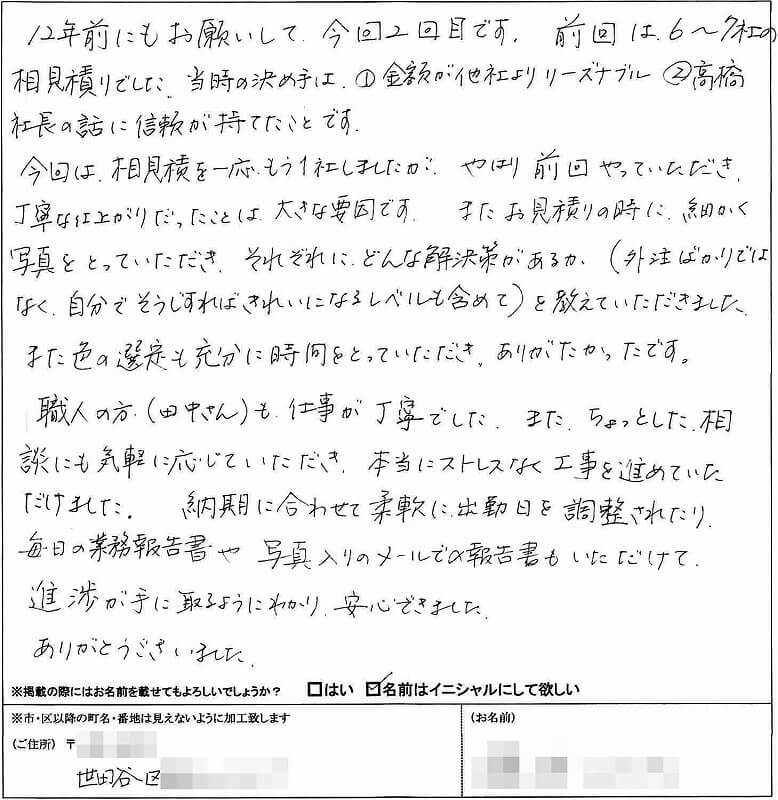 12年前にもお願いして、今回2回目です。 前回は、6〜7社の
相見積りでした。当時の決め手は、①金額が他社よりリーズナブル ②高橋
社長の話に信頼が持てたことです。
今回は、相見積を一応、もう1社しましたが、やはり前回やっていただき、
丁寧な仕上がりだったことは、大きな要因です。 またお見積りの時に、細かく
写真をとっていただき、それぞれに、どんな解決策があるか、(外注ばかりでは
なく、自分でそうじすればきれいになるレベルも含めて)を教えていただきました、
また色の選定も充分に時間をとっていただき、ありがたかったです。
職人の方、(田中さん)も、仕事が丁寧でした。また、ちょっとした、相
談にも気軽に応じていただき、本当にストレスなく工事を進めていた
だけました。 納期に合わせて柔軟に、出勤日を調整されたり、
毎日の業務報告書や 写真入りのメールでの報告書もいただけて、
進渉が手に取るようにわかり、安心できました。
ありがとうございました。
※掲載の際にはお名前を載せてもよろしいでしょうか? □はい ☑名前はイニシャルにして欲しい
※市・区以降の町名・番地は見えないように加工致します
(ご住所) 〒
世田谷区
(お名前)